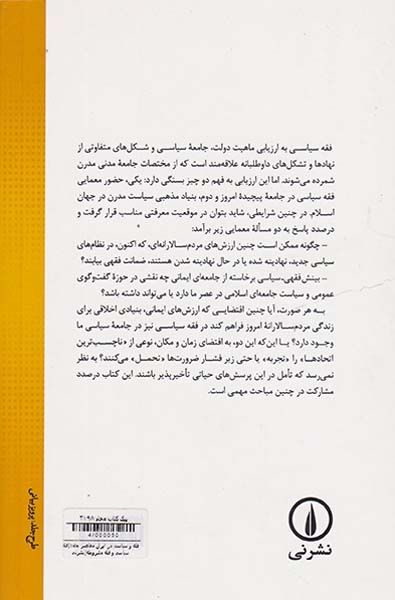 فقه سیاسی به ارزیابی ماهیت دولت، جامعهٔ سیاسی و شکل‌های متفاوتی از
نهادها و تشکل‌های داوطلبانه علاقه‌مند است که از مختصات جامعهٔ مدنی مدرن
شمرده می‌شوند. اما این ارزیابی به فهم دو چیز بستگی دارد: یکی، حضور معمایی
فقه سیاسی در جامعهٔ پیچیدهٔ امروز و دوم، بنیاد مذهبی سیاست مدرن در جهان
اسلام. در چنین شرایطی، شاید بتوان در موقعیت معرفتی مناسب قرار گرفت و
درصدد پاسخ به دو مسألهٔ معمایی زیر برآمد:
– چگونه ممکن است چنین ارزش‌های مردم‌سالارانه‌ای، که اکنون، در نظام‌های
سیاسی جدید، نهادینه شده یا در حال نهادینه شدن هستند، ضمانت فقهی بیابند؟
– بینش فقهی، سیاسی برخاسته از جامعه‌ای ایمانی چه نقشی در حوزهٔ گفت‌وگوی
عمومی و سیاست جامعه‌ای اسلامی در عصر ما دارد یا می‌تواند داشته باشد؟
به هر صورت، آیا چنین اقتضایی که ارزش‌های ایمانی، بنیادی اخلاقی برای
زندگی مردم‌سالارانهٔ امروز فراهم کند در فقه سیاسی نیز در جامعهٔ سیاسی ما
وجود دارد؟ یا این‌که این دو، به اقتضای زمان و مکان، نوعی از «ناچسب‌ترین
اتحادها» را «تجربه» یا حتی زیر فشار ضرورت‌ها «تحمل» می‌کنند؟ به نظر
نمی‌رسد که تأمل در این پرسش‌های حیاتی تأخیرپذیر باشند. این کتاب درصدد
مشارکت در چنین مباحث مهمی است.
نشرنی
طرح جلد: پرویز بیانی